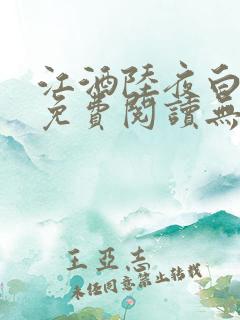 江酒陸夜白
免費閱讀無
王亞志
未經同意禁止轉載